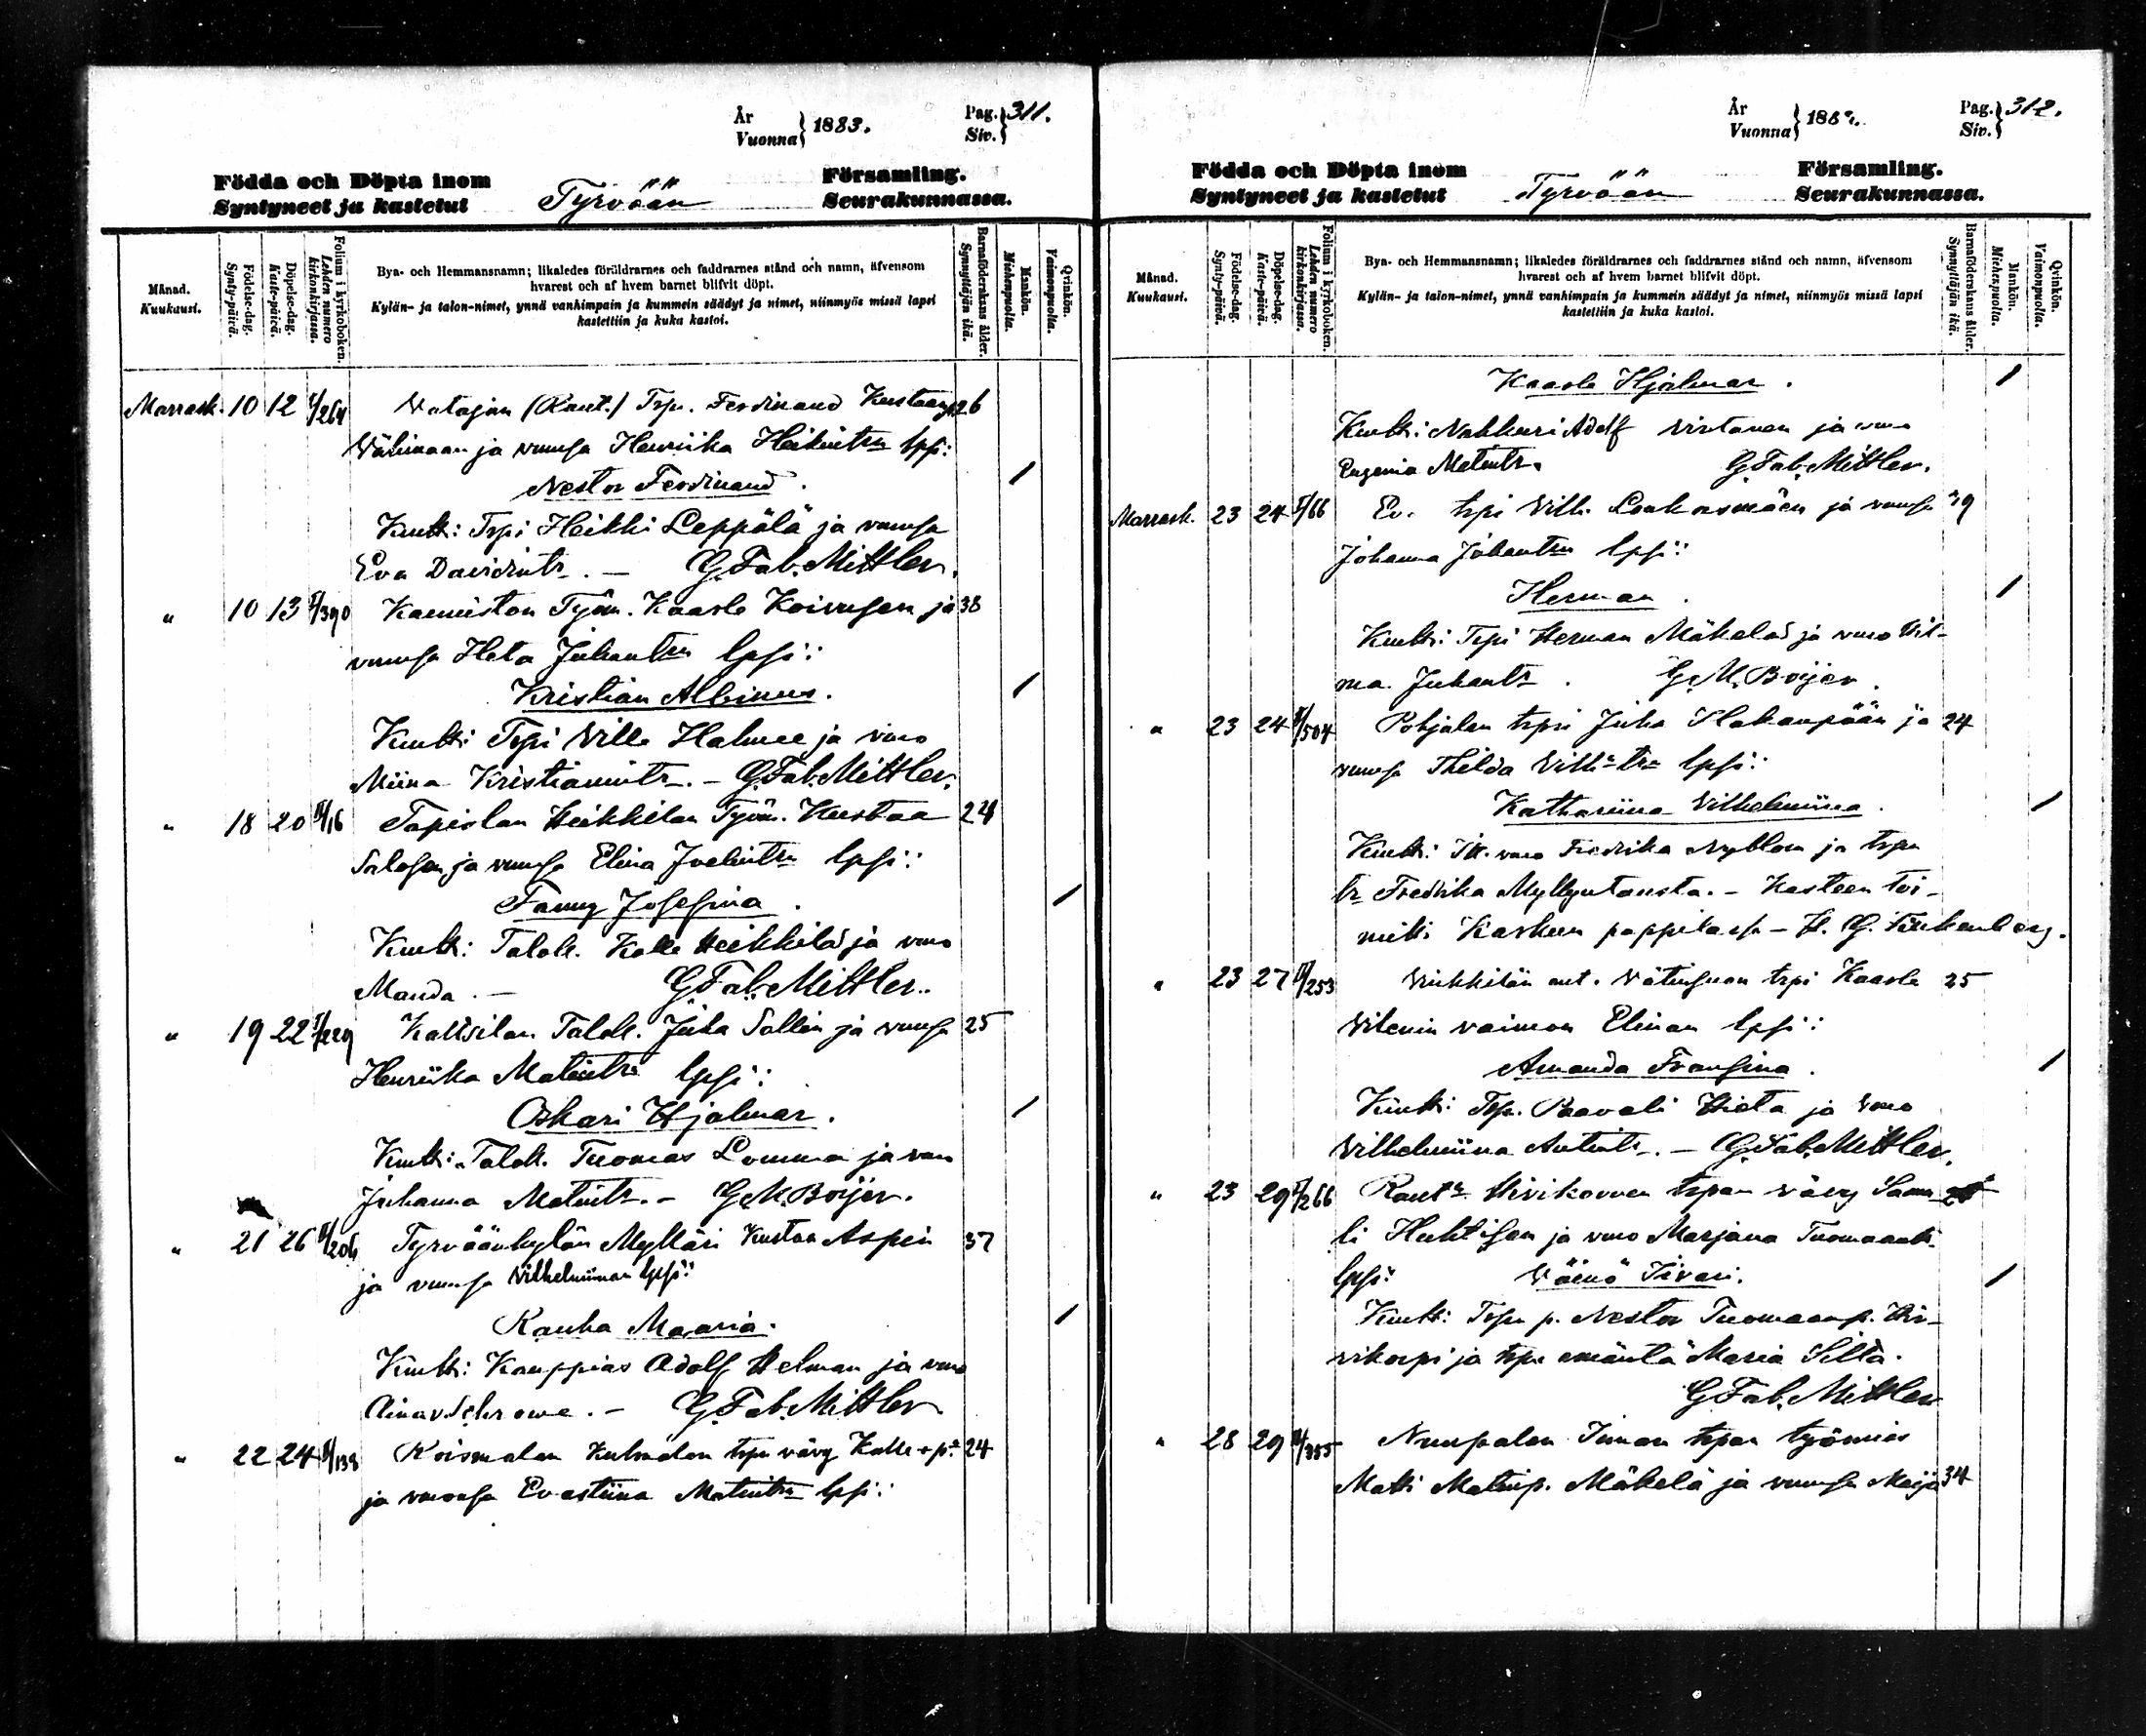 År
Vuonna } 1883.
Pag.
Siv. } 311.
Födda och Döpta inom
Syntyneet ja kastetut
Tyrvään
Församling.
Seurakunnassa.
Månad.
Kuukausi.
Födelse-dag.
Synty-päivä.
Döpelse-dag.
Kaste-päivä.
Folium i kyrkoboken.
Lehden numero kirkonkirjassa.
Bya- och Hemmansnamn; likaledes föräldrarnes och faddrarnes stånd och namn, äfvensom
hvarest och af hvem barnet blifvit döpt.
Kylän- ja talon-nimet, ynnä vanhimpain ja kummein säädyt ja nimet, niinmyös missä lapsi
kastettiin ja kuka kastoi.
Barnaföderskans ålder.
Synnyttäjän ikä.
Mankön.
Miehenpuolia.
Qvinkön.
Vaimonpuolia.
Marrask. 10 12 /264 (Raut.) Trp. Ferdinand 26
ja vmonsa Henriika Heikintr lpsi:
Nestor Ferdinand. /
Kmtt: Trpi Heikki Leppälä ja vmonsa
Eva Davidintr. — G. Fab. Mittler.
" 10 13 /390 Kaemiston Työm. Kaarle Koivusen ja 38
vmonsa Heta Juhantr lpsi:
Kristian Albinus. /
Kmtt: Trpi Ville Halmee ja vmo
Miina Kristianintr. — G. Fab. Mittler.
" 18 20 /16 Tapiolan Heikkilan Työm. Kustaa 24
Salosen ja vmonsa Elina lpsi:
Fanny Josefina. /
Kmtt: Talok. Kalle Heikkilä ja vmo
Manda. — G. Fab. Mittler.
" 19 22 /229 Talok. Juha Sallin ja vmonsa 25
Henriika Matintr lpsi:
Oskari Hjalmar. /
Kmtt: Talok. Tuomas ja vmo
Juhanna Matintr. — G. M. Boijer.
" 21 26 /206 Tyrväänkylän Mylläri Kustaa Aspin 37
ja vmonsa Vilhelmiinan lpsi:
Rauha Maaria. /
Kmtt: Kauppias Adolf Helman ja vmo
Aina — G. Fab. Mittler
" 22 24 /138 Roismalan Kulmalan trpn vävy Kalle 24
ja vmonsa Evastiina Matintr lpsi:
År
Vuonna } 188
Pag.
Siv. } 312.
Födda och Döpta inom
Syntyneet ja kastetut
Tyrvään
Församling.
Seurakunnassa.
Månad.
Kuukausi.
Födelse-dag.
Synty-päivä.
Döpelse-dag.
Kaste-päivä.
Folium i kyrkoboken.
Lehden numero kirkonkirjassa.
Bya- och Hemmansnamn; likaledes föräldrarnes och faddrarnes stånd och namn, äfvensom
hvarest och af hvem barnet blifvit döpt.
Kylän- ja talon-nimet, ynnä vanhimpain ja kummein säädyt ja nimet, niinmyös missä lapsi
kastettiin ja kuka kastoi.
Barnaföderskans ålder.
Synnyttäjän ikä.
Mankön.
Miehenpuolia.
Qvinkön.
Vaimonpuolia.
Kaarle Hjalmar. /
Kmtt: Nahkuri Adolf Virtanen ja vmo
Eugenia Matintr. G. Fab. Mittler.
Marrask. 23 24 /66 Ev. trpi Vilh. ja vmonsa
Johanna Juhantr lpsi:
Herman. /
Kmtt: Trpi Herman Mäkelä ja vmo Vil-
ma Juhantr. G. M. Boijer.
" 23 24 /504 Pohjalan trpi Juha Hakanpään ja 24
vmonsa Thilda lpsi:
Kathariina Vilhelmiina. /
Kmtt: vmo Fredrika Nyblom ja trpn
tr Fredrika Myllyntausta. — Kasteen toi-
mitti pappilassa —
" 23 27 /253 trpi Kaarle 25
vaimon Elinan lpsi:
Amanda Fransina. /
Kmtt: Trp. Paavali Hieta ja vmo
Vilhelmiina Antintr. — G. Fab. Mittler.
" 23 29 /266 trpan vävy Samu
li Huhtisen ja vmo Marjana
lpsi: Väinö Iivari. /
Kmtt: Trpn p. Nestor Tuomaanp. Hir-
vikorpi ja trpn emäntä Maria Silta.
G. Fab. Mittler
" 28 29 /355 Nuupalan trpan työmies
Matti Matinp. Mäkelä ja vmonsa Maija 34